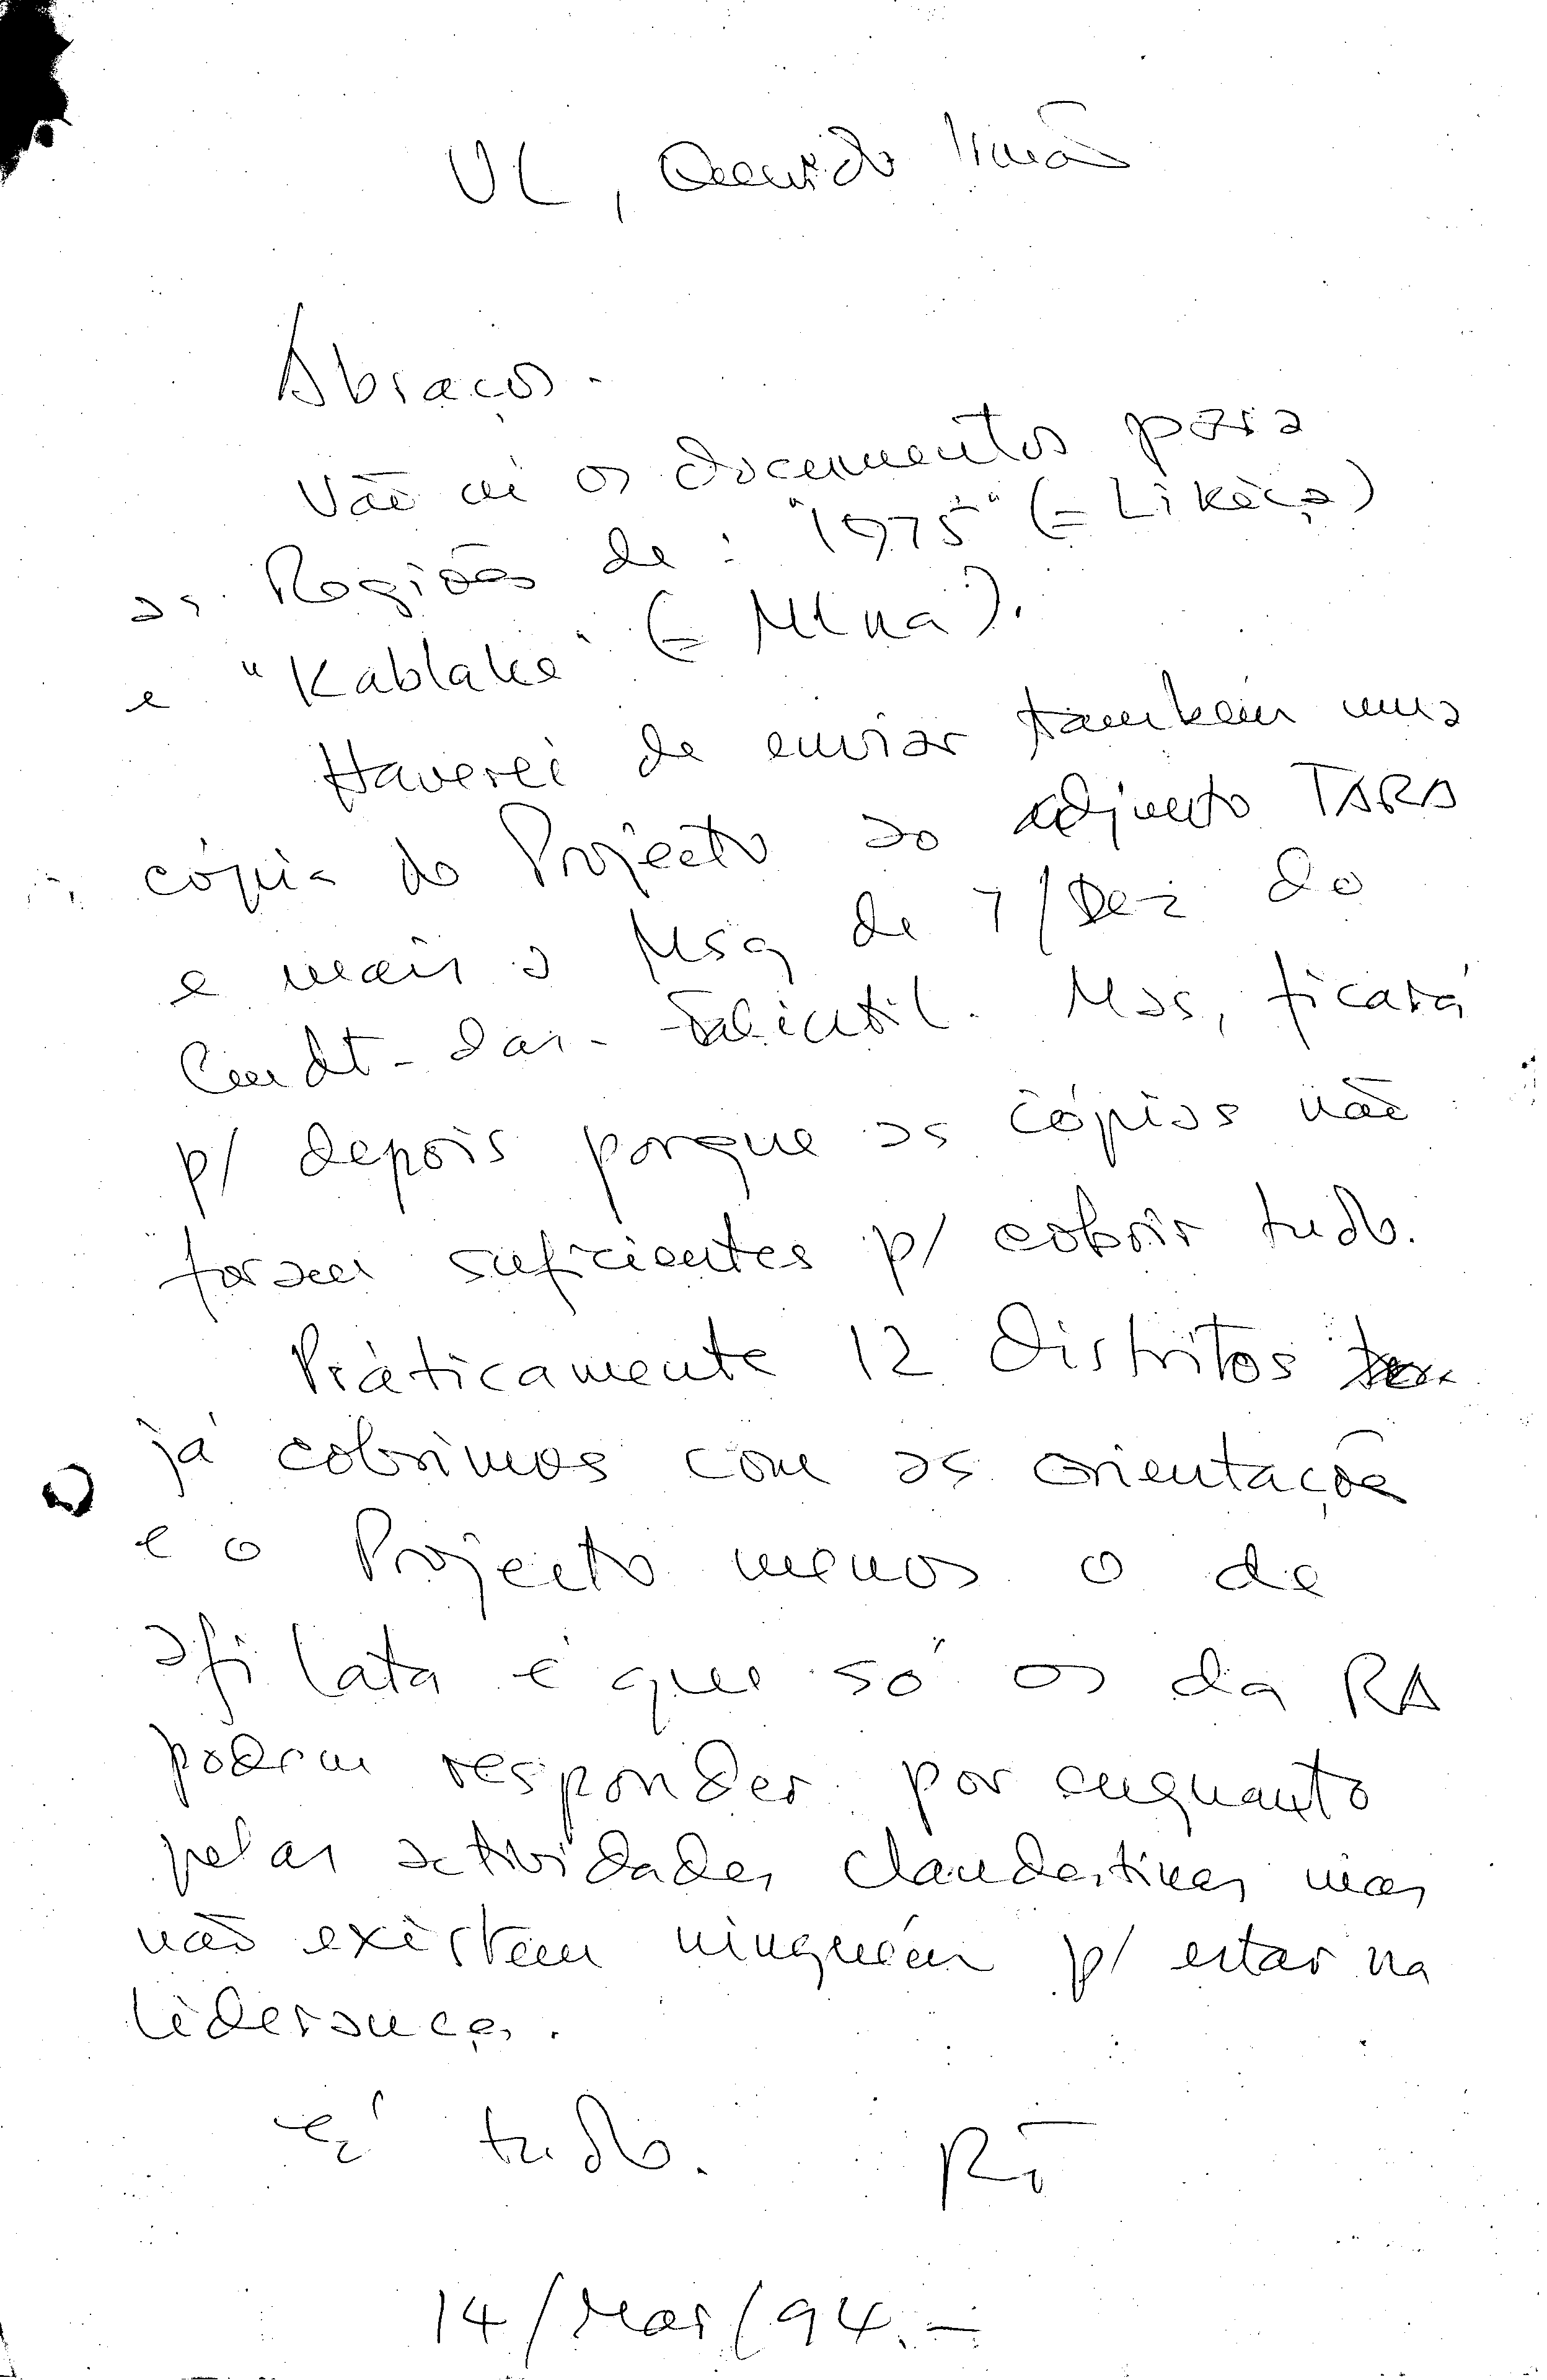 VL, Querido Irmão
Abraços.
Vão aí os documentos para
as Regiões de: "1975" (= Likiça)
e "Kablake" (= Mina).
Haverei de enviar também uma
cópia do Projecto ao adjunto TARA
e mais a Msg de 7/Dez do
Cmdt-das-Falintil. Mas, ficará
p/ depois porque as cópias não
foram suficientes p/ cobrir tudo.
Pràticamente 12 Distritos
já cobrimos com as orientações
e o Projecto menos o de
é que só os da RA
podem responder por enquanto
pelas actividades clandestinas mas
não existem ninguém p/ estar na
liderança.
É tudo.
14/Mar/94.-